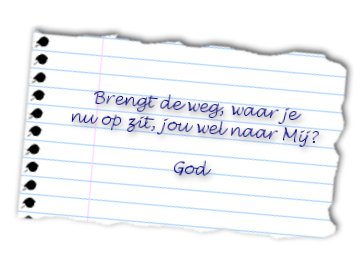 Brengt de weg, waar je
nu op zit, jou wel naar Mij?
God